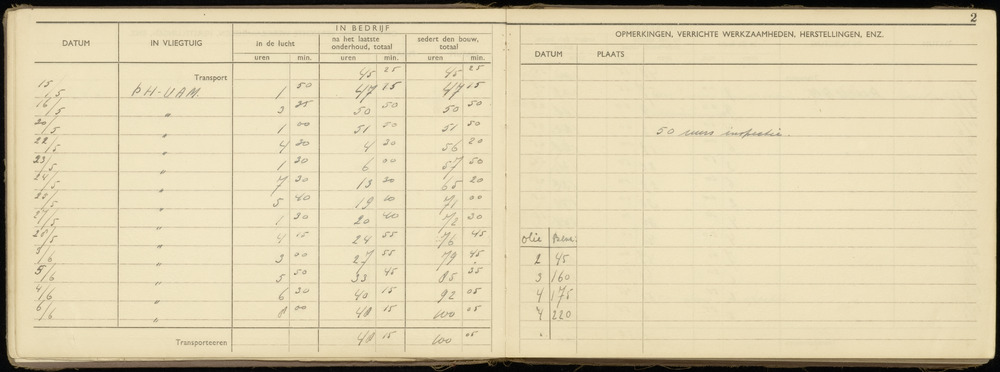 2
IN BEDRIJF
DATUM IN VLIEGTUIG in de lucht na het laatste onderhoud, totaal sedert den bouw, totaal
uren min. uren min. uren min.
Transport 45 25 45 25
15/5 PH-UAM. 1 50 47 15 47 15
16/5 " 3 35 50 50 50 50
20/5 " 1 00 51 50 51 50
22/5 " 4 30 4 30 56 20
23/5 " 1 30 6 00 57 50
24/5 " 7 30 13 30 65 20
25/5 " 5 40 19 10 71 00
27/5 " 1 30 20 40 72 30
28/5 " 4 15 24 55 76 45
3/6 " 3 00 27 55 79 45
5/6 " 5 50 33 45 85 35
4/6 " 6 30 40 15 92 05
6/6 " 8 00 48 15 100 05
Transporteeren 48 15 100 05
OPMERKINGEN, VERRICHTE WERKZAAMHEDEN, HERSTELLINGEN, ENZ.
DATUM PLAATS
50 uurs inspectie.
olie
2 45
3 160
4 175
4 220